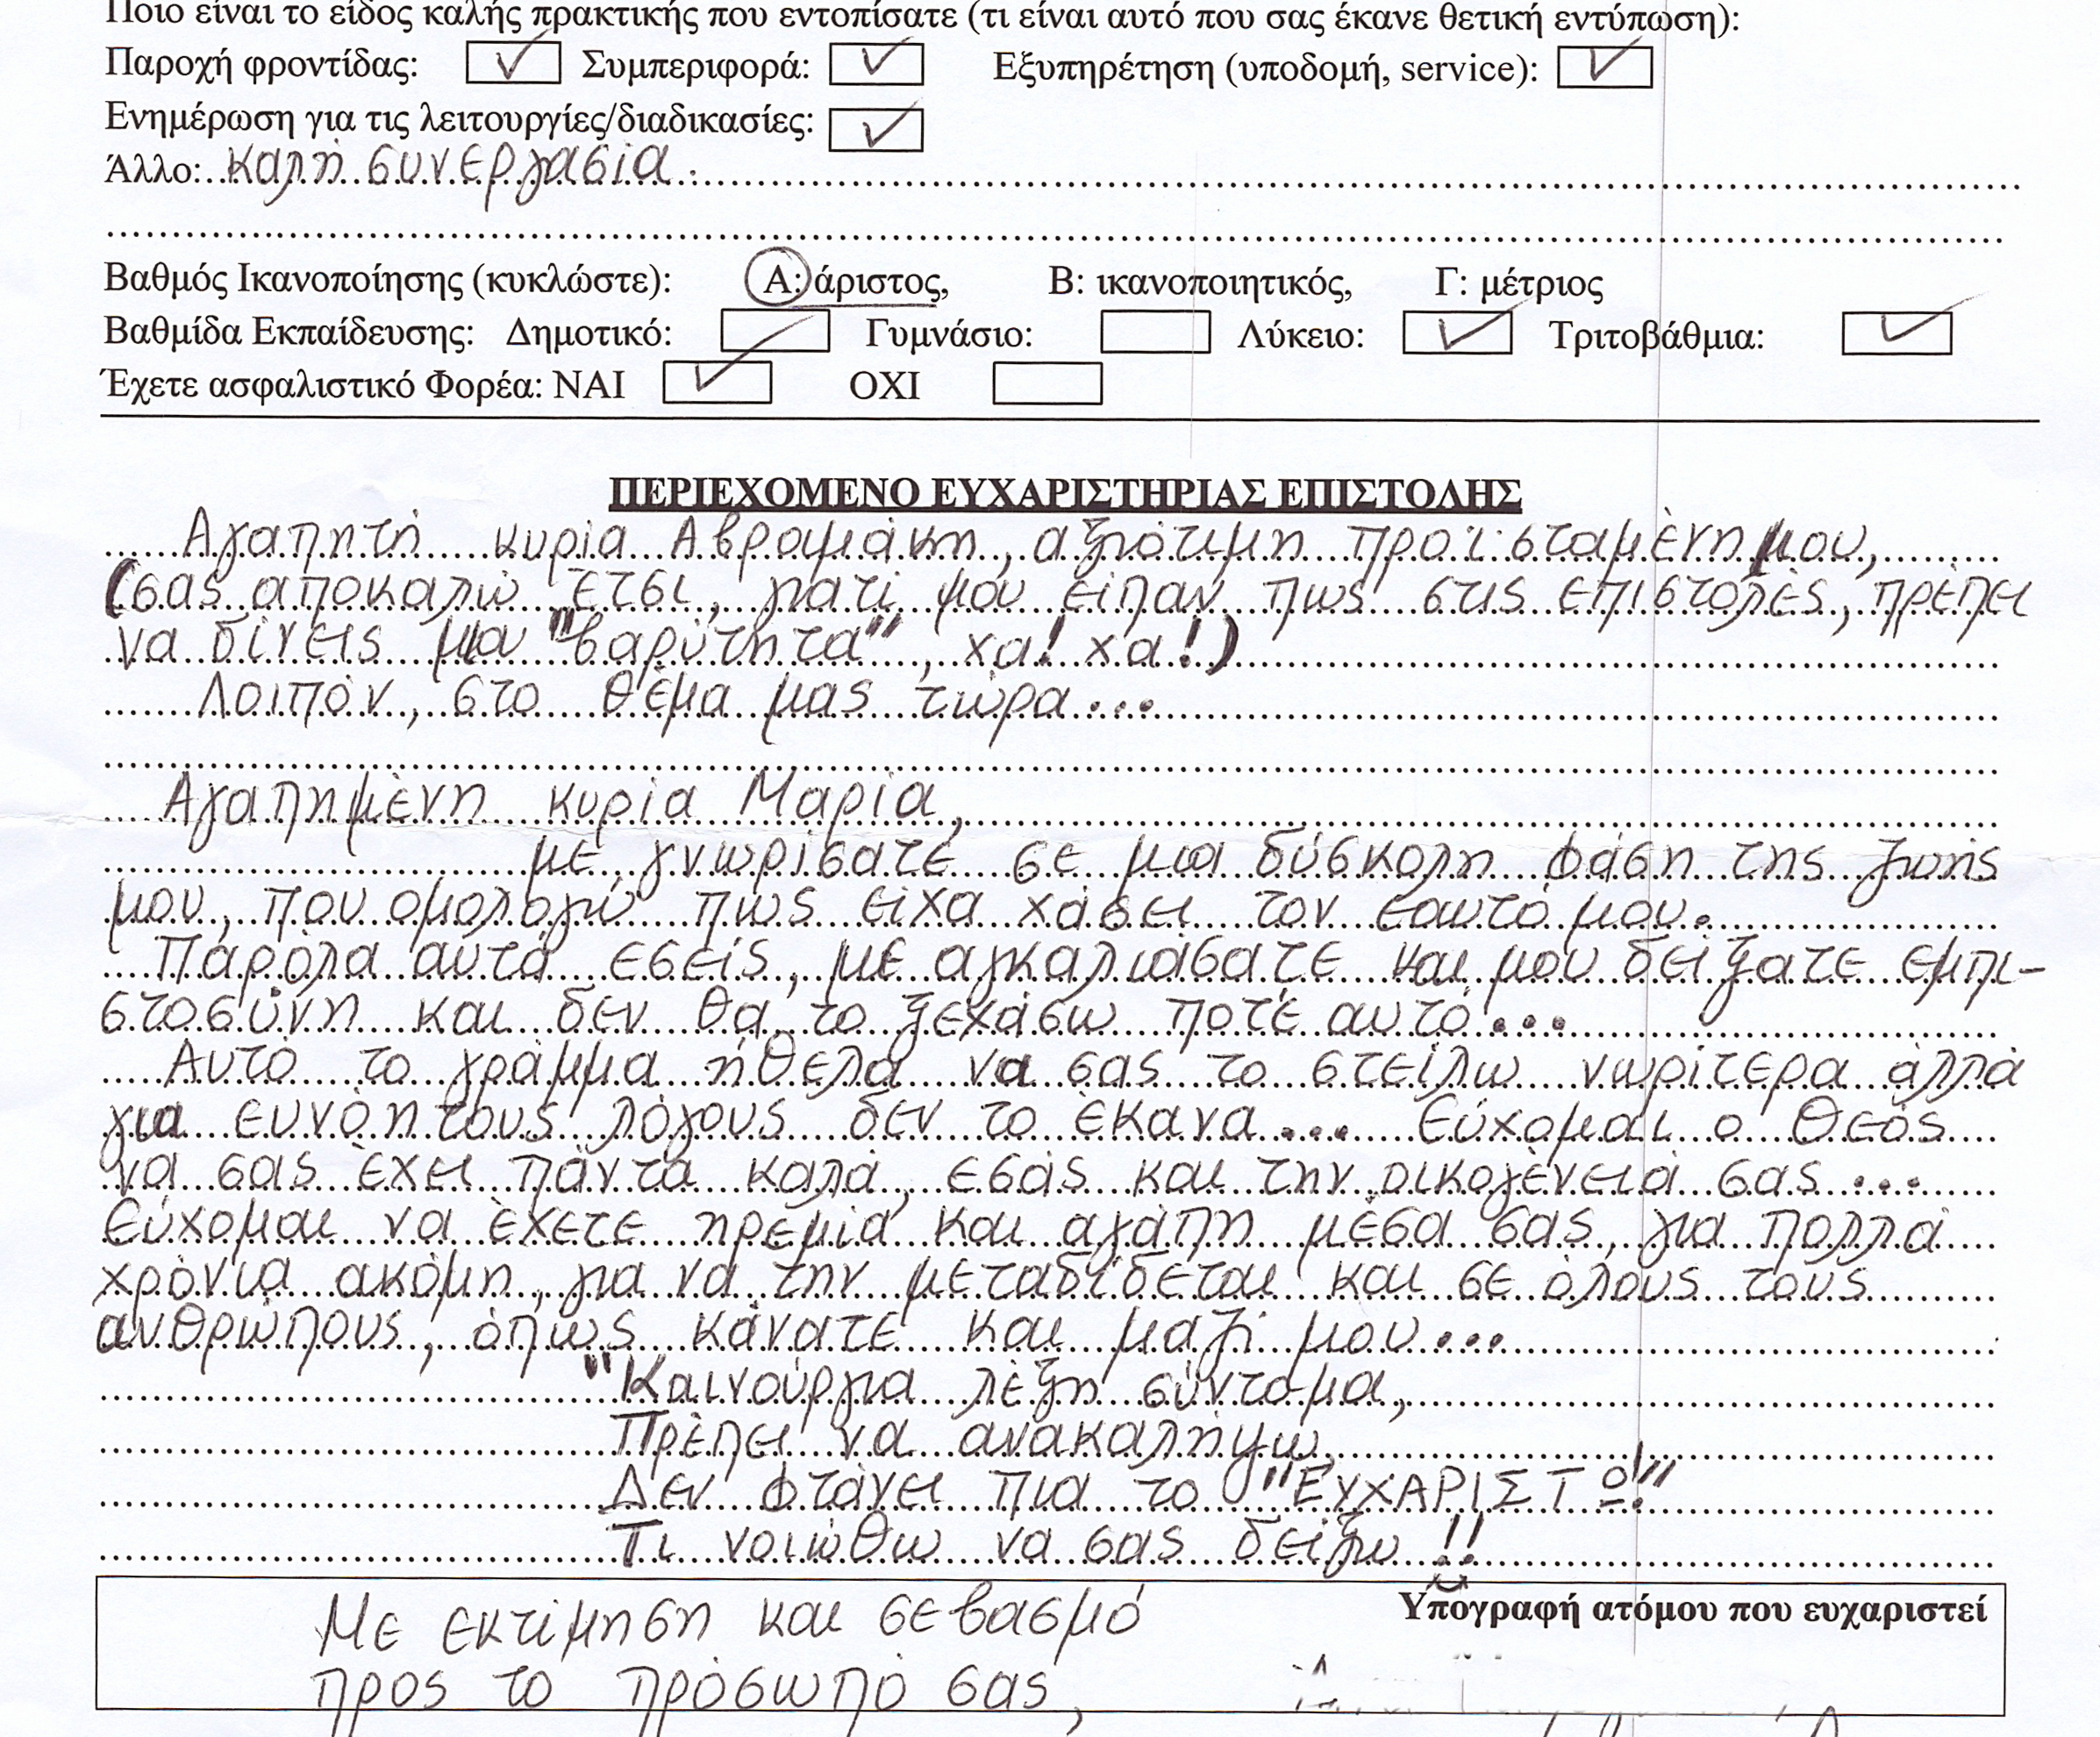 Ποιο είναι το είδος καλής πρακτικής που εντοπίσατε (τι είναι αυτό που σας έκανε θετική εντύπωση):
Παροχή φροντίδας: ✓ Συμπεριφορά: ✓ Εξυπηρέτηση (υποδομή, service): ✓
Ενημέρωση για τις λειτουργίες/διαδικασίες: ✓
Άλλο: καλή συνεργασία.
Βαθμός Ικανοποίησης (κυκλώστε): Α: άριστος, Β: ικανοποιητικός, Γ: μέτριος
Βαθμίδα Εκπαίδευσης: Δημοτικό: Γυμνάσιο: Λύκειο: ✓ Τριτοβάθμια: ✓
Έχετε ασφαλιστικό Φορέα: ΝΑΙ ✓ ΟΧΙ
ΠΕΡΙΕΧΟΜΕΝΟ ΕΥΧΑΡΙΣΤΗΡΙΑΣ ΕΠΙΣΤΟΛΗΣ
Αγαπητή κυρία Αβραμάκη, αξιότιμη προϊσταμένη μου,
(σας αποκαλώ έτσι, γιατί μου είπαν πως στις επιστολές, πρέπει
να δίνεις μια "βαρύτητα", χα! χα!)
Λοιπόν, στο θέμα μας τώρα...
Αγαπημένη κυρία Μαρία,
με γνωρίσατε σε μια δύσκολη φάση της ζωής
μου, που ομολογώ πως είχα χάσει τον εαυτό μου.
Παρόλα αυτά εσείς, με αγκαλιάσατε και μου δείξατε εμπι-
στοσύνη και δεν θα το ξεχάσω ποτέ αυτό...
Αυτό το γράμμα ήθελα να σας το στείλω νωρίτερα αλλά
για ευνόητους λόγους δεν το έκανα... Εύχομαι ο Θεός
να σας έχει πάντα καλά, εσάς και την οικογένειά σας...
Εύχομαι να έχετε ηρεμία και αγάπη μέσα σας, για πολλά
χρόνια ακόμη, για να την μεταδίδεται και σε όλους τους
ανθρώπους, όπως κάνατε και μαζί μου...
"Καινούργια λέξη σύντομα,
Πρέπει να ανακαλήψω
Δεν φτάνει πια το "ΕΥΧΑΡΙΣΤΩ!"
Τι νοιώθω να σας δείξω!!
Υπογραφή ατόμου που ευχαριστεί
Με εκτίμηση και σεβασμό
προς το πρόσωπό σας,